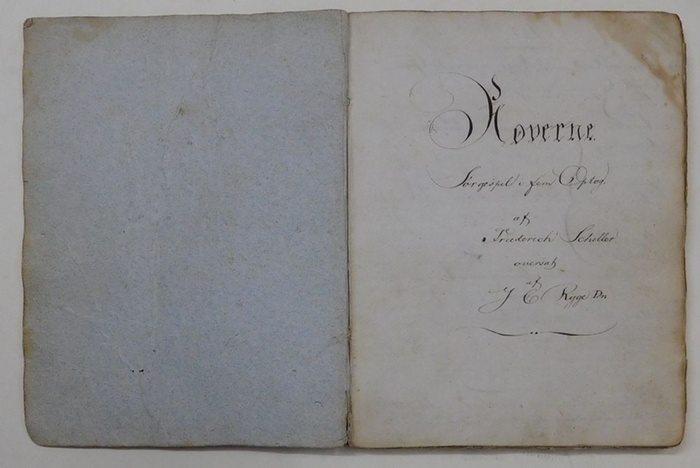 Røverne
Sørgespil i fem Optog
af
Friederich Schiller
oversat
af
J C Ryge Dr